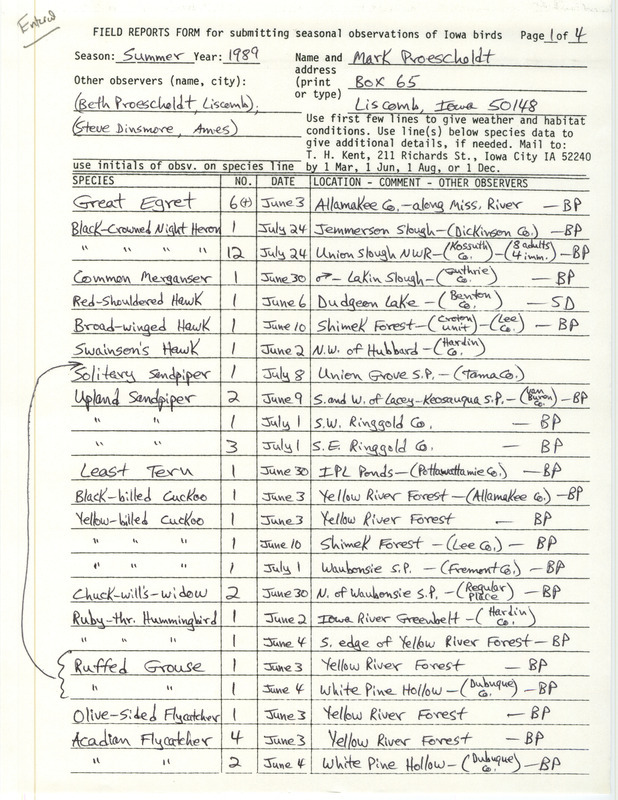 Entered
FIELD REPORTS FORM for submitting seasonal observations of Iowa birds Page 1 of 4
Season: Summer Year: 1989 Name and Mark Proescholdt
address
Other observers (name, city): (print Box 65
or type)
(Beth Proescholdt, Liscomb), Liscomb, Iowa 50148
(Steve Dinsmore, Ames) Use first few lines to give weather and habitat
conditions. Use line(s) below species data to
give additional details, if needed. Mail to:
T. H. Kent, 211 Richards St., Iowa City IA 52240
use initials of obsv. on species line by 1 Mar, 1 Jun, 1 Aug, or 1 Dec.
SPECIES NO. DATE LOCATION - COMMENT - OTHER OBSERVERS
Great Egret 6(+) June 3 Allamakee Co. - along Miss. River - BP
Black-Crowned Night Heron 1 July 24 Jemmerson Slough - (Dickinson Co.) - BP
" " " " 12 July 24 Union Slough NWR - (Kossuth Co.) - (8 adults 4 imm.) - BP
Common Merganser 1 June 30 ♂ - Lakin Slough - (Guthrie Co.) - BP
Red-Shouldered Hawk 1 June 6 Dudgeon Lake - (Benton Co.) - SD
Broad-winged Hawk 1 June 10 Shimek Forest - (Croton unit) - (Lee Co.) - BP
Swainson's Hawk 1 June 2 N.W. of Hubbard - (Hardin Co.)
Solitary Sandpiper 1 July 8 Union Grove S.P. - (Tama Co.)
Upland Sandpiper 2 June 9 S. and W. of Lacey-Keosauqua S.P. - (Van Buren Co.) - BP
" " 1 July 1 S.W. Ringgold Co. - BP
" " 3 July 1 S.E. Ringgold Co. - BP
Least Tern 1 June 30 IPL Ponds - (Pottawattamie Co.) - BP
Black-billed Cuckoo 1 June 3 Yellow River Forest - (Allamakee Co.) - BP
Yellow-billed Cuckoo 1 June 3 Yellow River Forest - BP
" " " 1 June 10 Shimek Forest - (Lee Co.) - BP
" " " 1 July 1 Waubonsie S.P. - (Fremont Co.) - BP
Chuck-will's-widow 2 June 30 N. of Waubonsie S.P. - (Regular place) - BP
Ruby-thr. Hummingbird 1 June 2 Iowa River Greenbelt - (Hardin Co.)
" " " 1 June 4 S. edge of Yellow River Forest - BP
Ruffed Grouse 1 June 3 Yellow River Forest - BP
" " 1 June 4 White Pine Hollow - (Dubuque Co.) - BP
Olive-Sided Flycatcher 1 June 3 Yellow River Forest - BP
Acadian Flycatcher 4 June 3 Yellow River Forest - BP
" " 2 June 4 White Pine Hollow - (Dubuque Co.) - BP